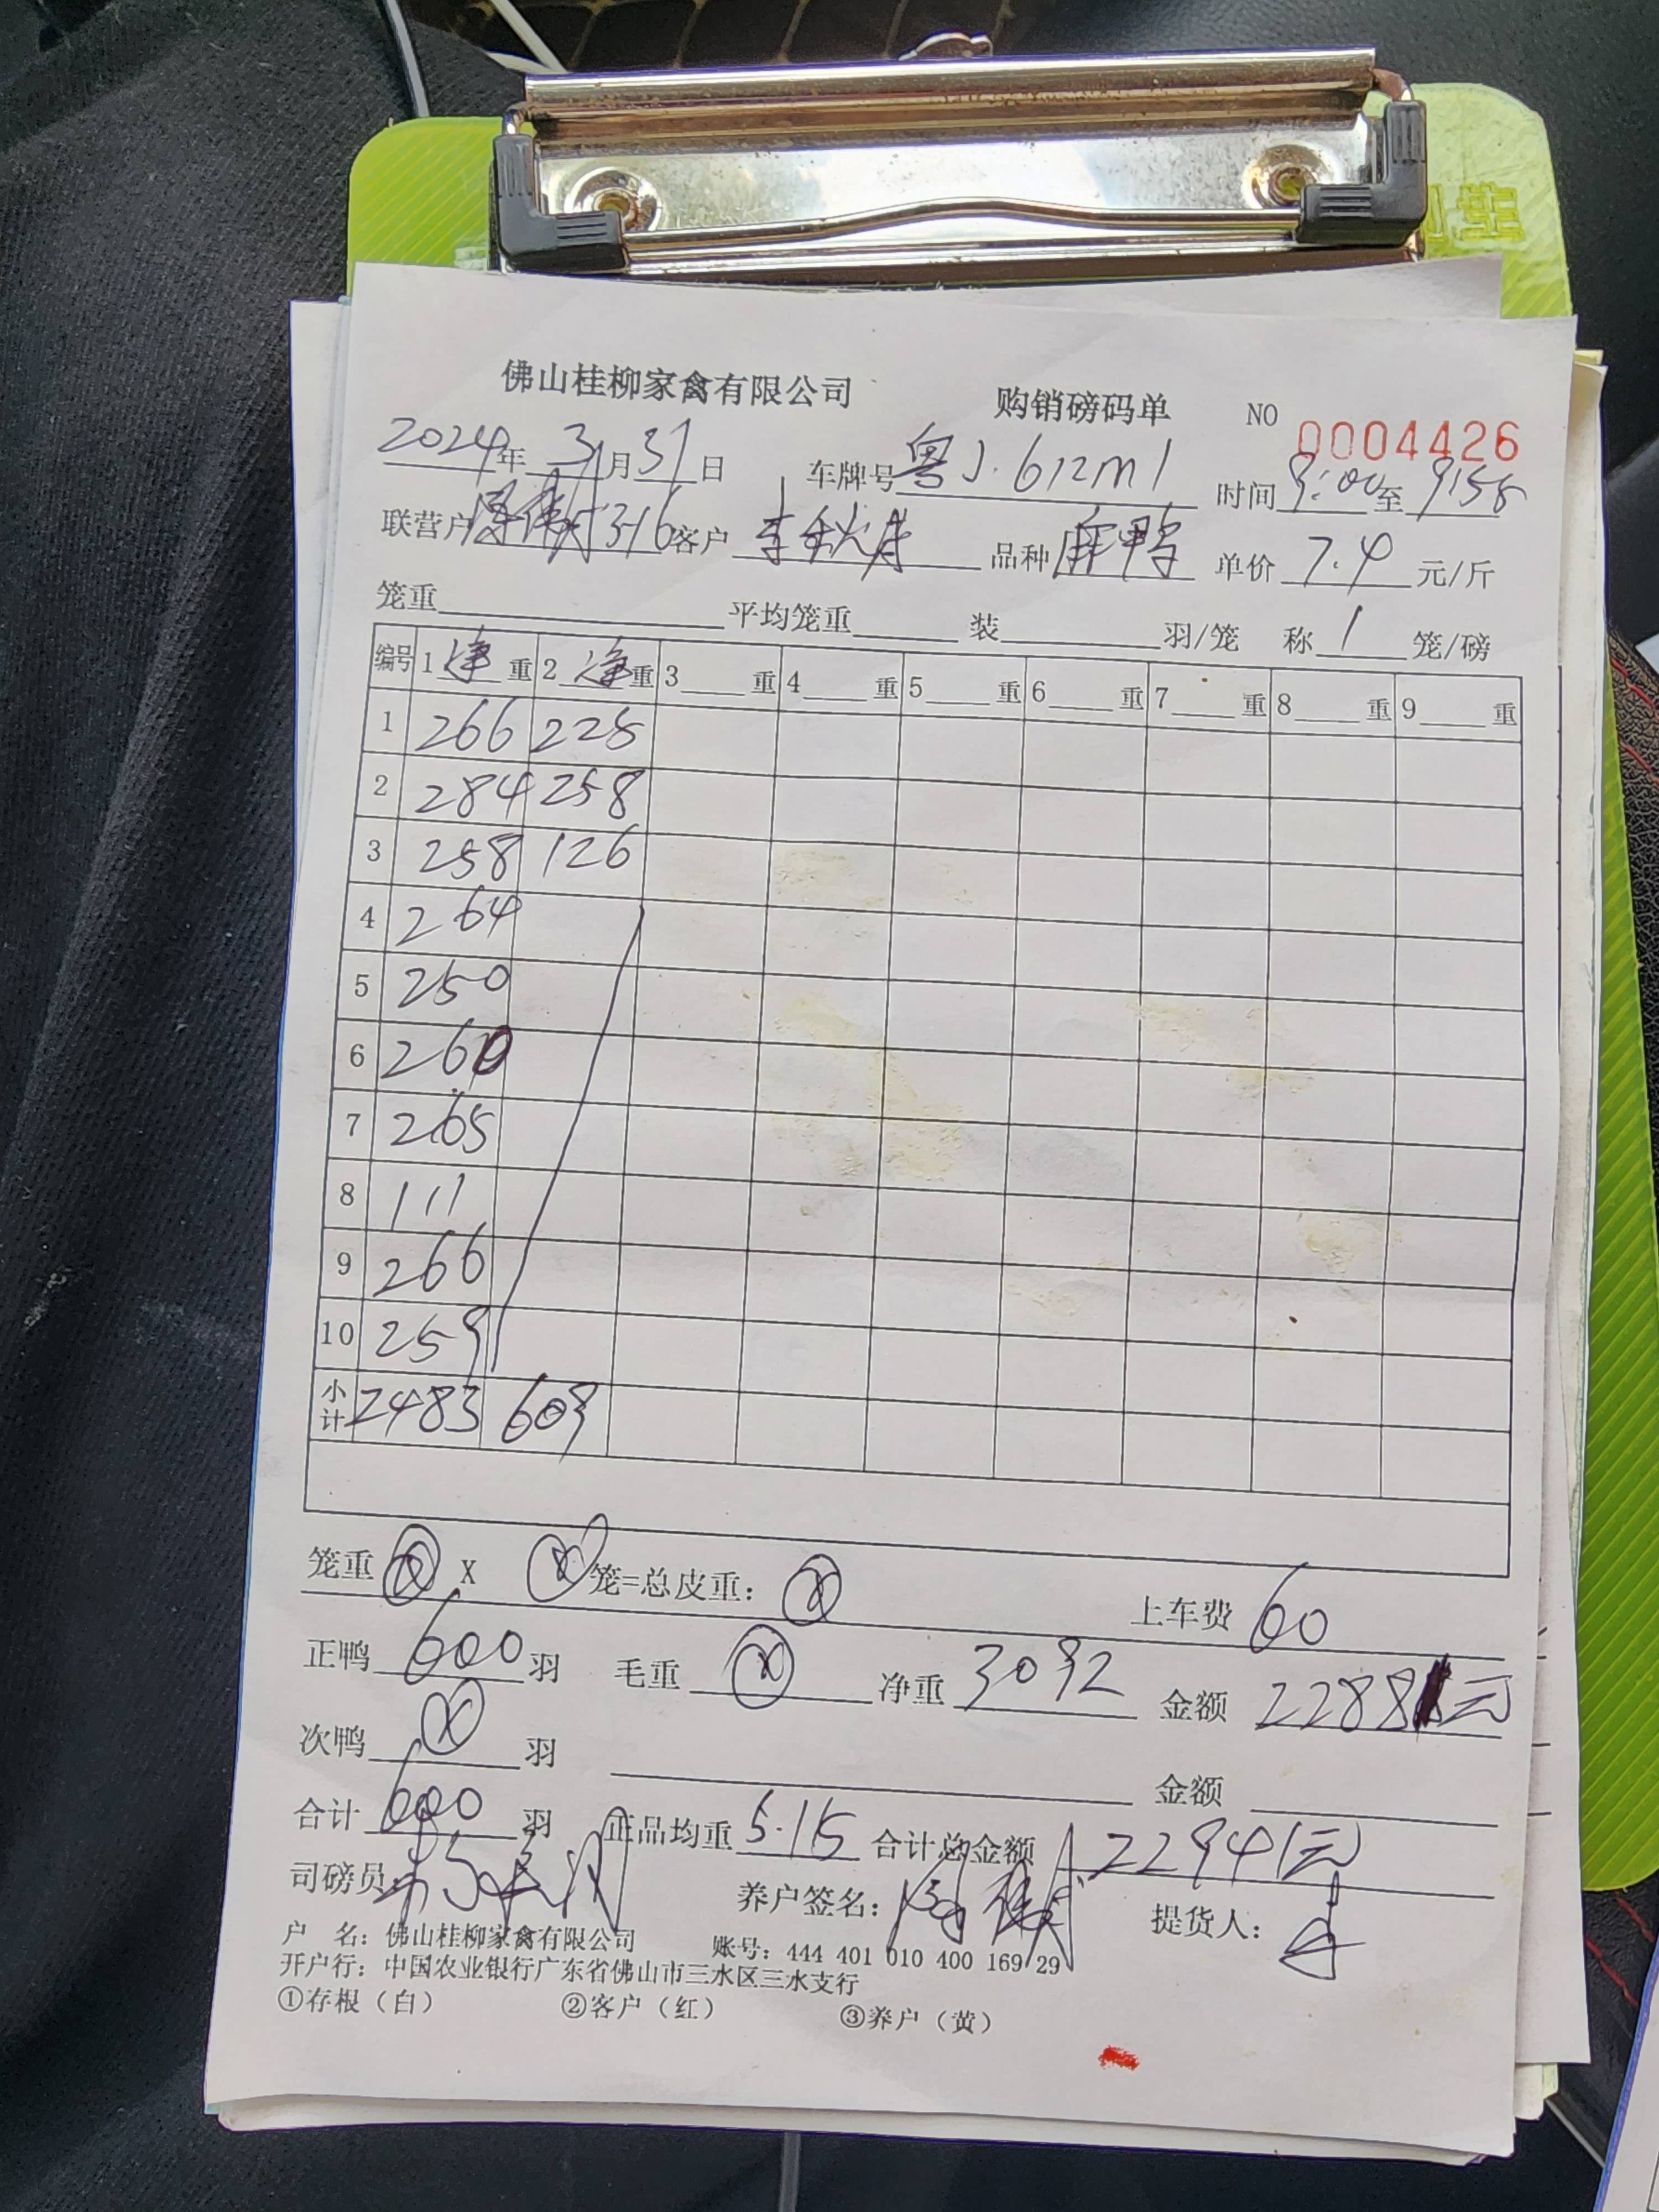 佛山桂柳家禽有限公司 购销磅码单 NO 0004426
2024年 3月31日 车牌号 粤J·612m1 时间 9:00至 9:58
联营户 5316 客户 李秋月 品种 麻鸭 单价 7.4 元/斤
笼重 平均笼重 装 羽/笼 称 1 笼/磅
编号 1 净 重 2 净 重 3 重 4 重 5 重 6 重 7 重 8 重 9 重
1 266 225
2 284 258
3 258 126
4 264
5 250
6 260
7 265
8 111
9 266
10 259
小计 2483 609
笼重 X 笼=总皮重： 上车费 60
正鸭 600 羽 毛重 净重 3092 金额 22881元
次鸭 羽 金额
合计 600 羽 正品均重 5.15 合计总金额 22941元
司磅员： 养户签名： 提货人：
户 名：佛山桂柳家禽有限公司 账号：444 401 010 400 169 29
开户行：中国农业银行广东省佛山市三水区三水支行
①存根（白） ②客户（红） ③养户（黄）